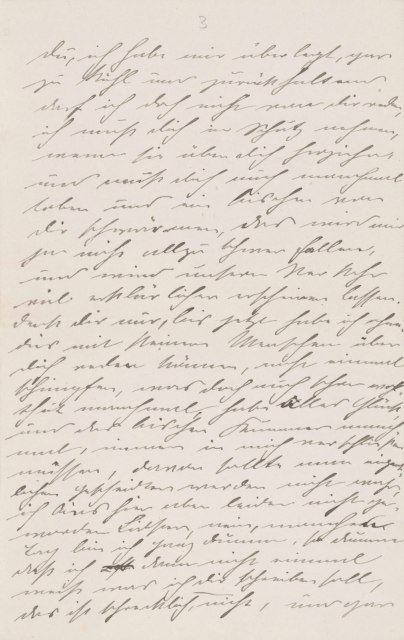 3
du, ich habe mir überlegt, gar
zu kühl und zurückhaltend
darf ich doch nicht von dir reden,
ich muß dich in Schutz nehmen,
wenn sie über dich herziehen
und muß dich auch manchmal
loben und ein bischen von
dir schwärmen, das wird mir
ja nicht allzu schwer fallen,
und wird unseren Verkehr
viel erklärlicher erscheinen lassen.
Denk dir nur, bis jetzt habe ich ohne
dies mit keinem Menschen über
dich reden können, nicht einmal
schimpfen, was doch auch schon
thut manchmal, habe alles Glück
und das bischen Kummer manch
mal, immer in mich verschließen
müssen, davon sollte man eigent
lich gescheidter werden nicht wahr,
ich bins hier aber leider nicht ge-
worden Liebster, nein, manchen
Tag bin ich ganz dumm, so dumm
daß ich dann nicht einmal
weiß was ich dir schreiben soll,
das ist schrecklich, nicht, und gar